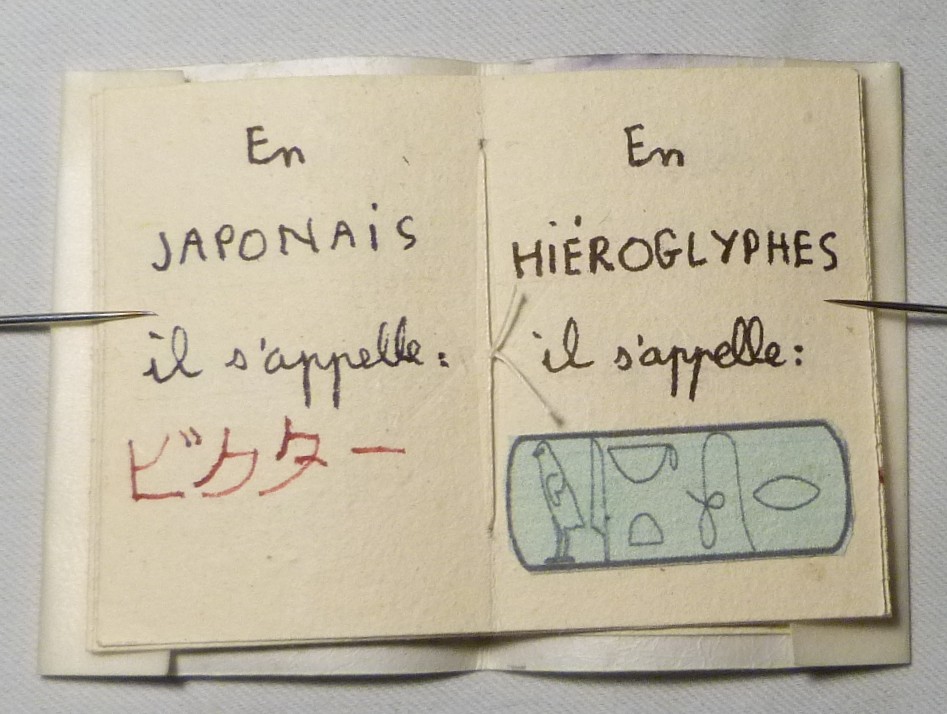 En
JAPONAiS
il s'appelle:
ビクター
En
HiÉROGLYPHES
il s'appelle: